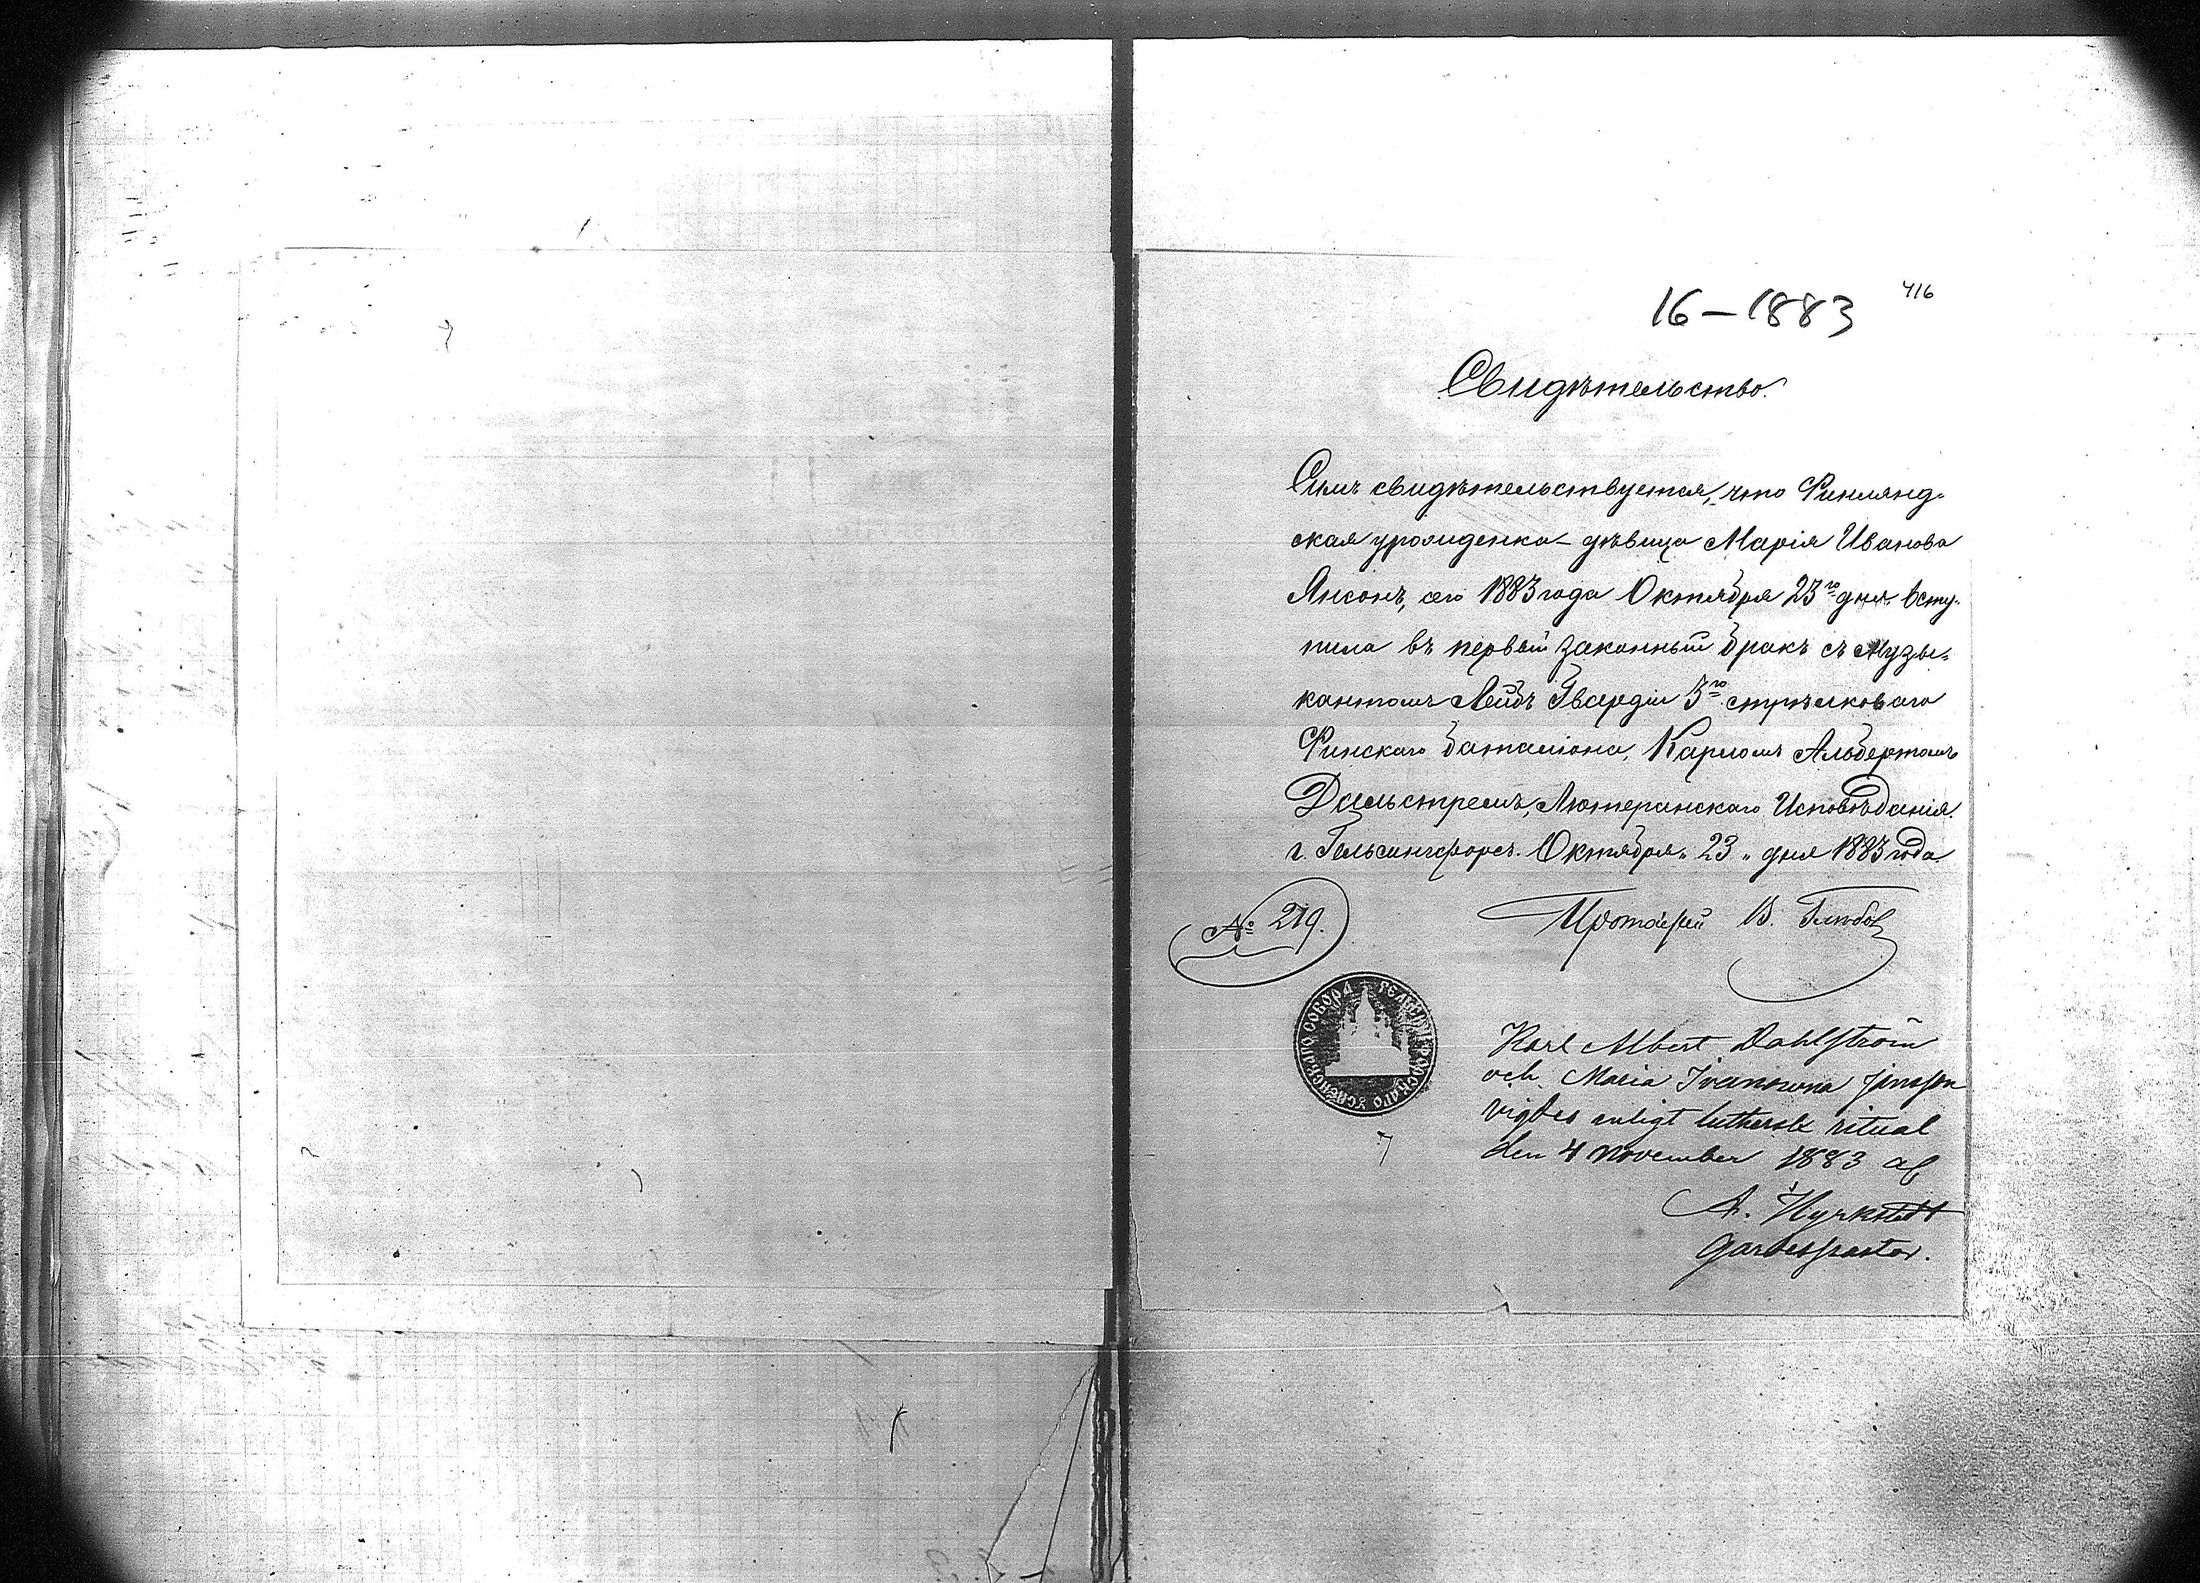 16-1883
416
Свидѣтельство.
Симъ свидѣтельствуется, что Финлянд-
ская уроженка - дѣвица Марія Иванова
Янсонъ, сего 1883 года Октября 23го дня всту-
пила въ первый законный бракъ съ музы-
кантомъ Лейбъ Гвардіи 3го стрѣлковаго
Финскаго баталіона, Карломъ Альбертомъ
Дальстремъ, Лютеранскаго Исповѣданія.
г. Гельсингфорсъ. Октября „ 23 „ дня 1883 года
№ 219.
Протоіерей В.
УСПЕНСКАГО СОБОРА
Karl Albert Dahlström
och Maria Ivanowna Jansson
vigdes enligt luthersk ritual
den 4 november 1883 af
A. Hyrkstedt
Gardespastor.